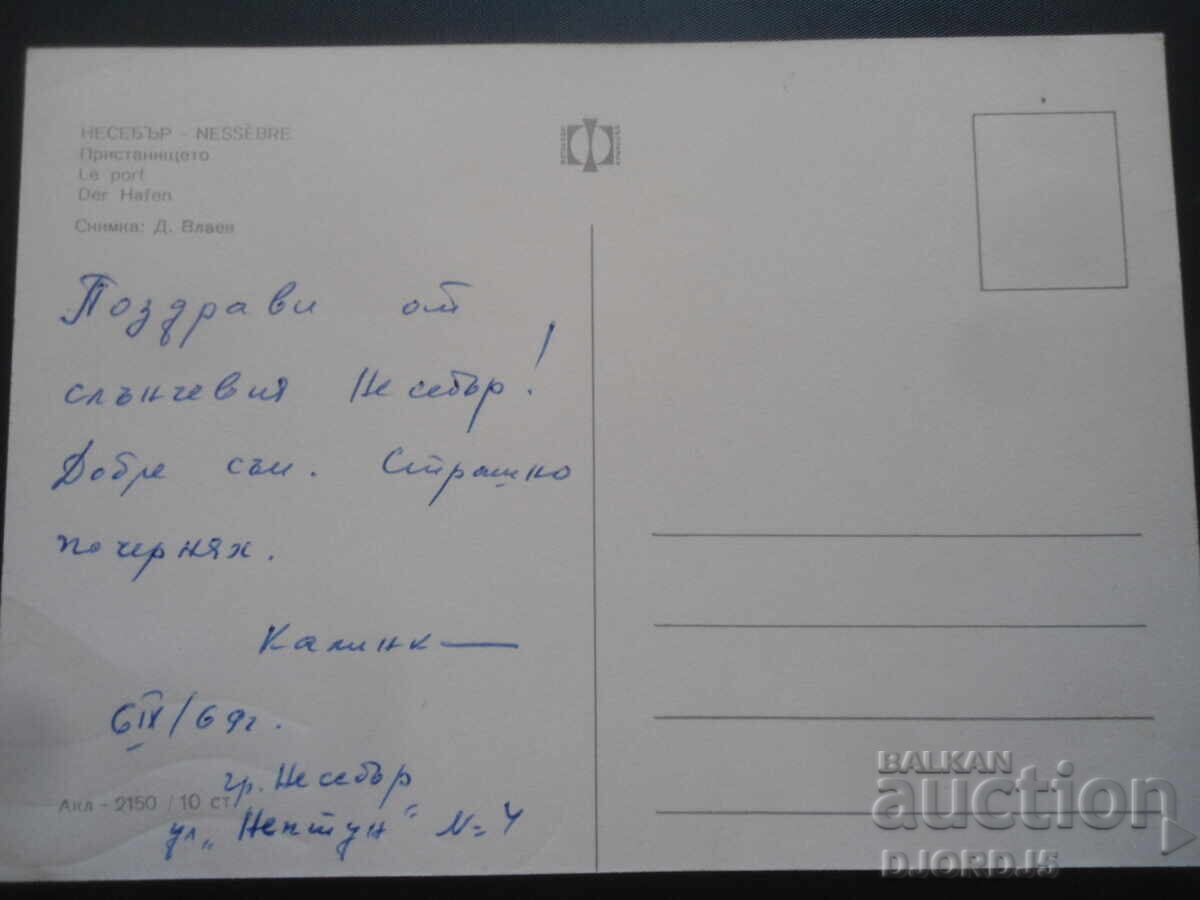 НЕСЕБЪР - NESSÈBRE
Пристанището
Le port
Der Hafen
Снимка: Д. Влаев
Поздрави от
слънчевия Несебър!
Добре съм. Страшно
почернях.
Калинк
6 IX/69г.
гр. Несебър
Акл - 2150 / 10 ст.
ул. "Нептун" № 4
BALKAN
auction
DJORDJ5